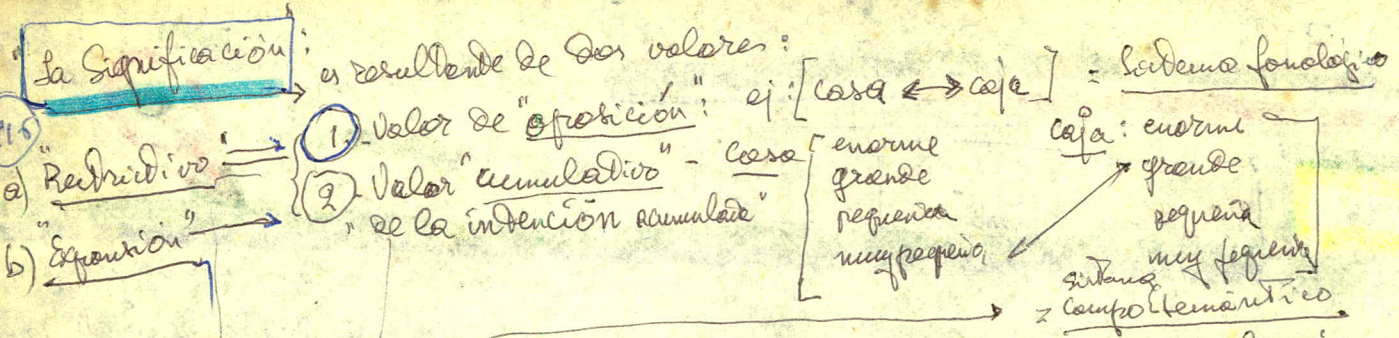 "La Significación":
es resultante de dos valores:
a) "Restrictivo"
b) "Expansión"
1.- Valor de "oposición": ej: [casa ↔ caja] = Sistema fonológico
2.- Valor "acumulativo" - casa
"de la intención acumulada"
enorme
grande
pequeña
muy pequeña
caja: enorme
grande
pequeña
muy pequeña
sistema
= campo semántico